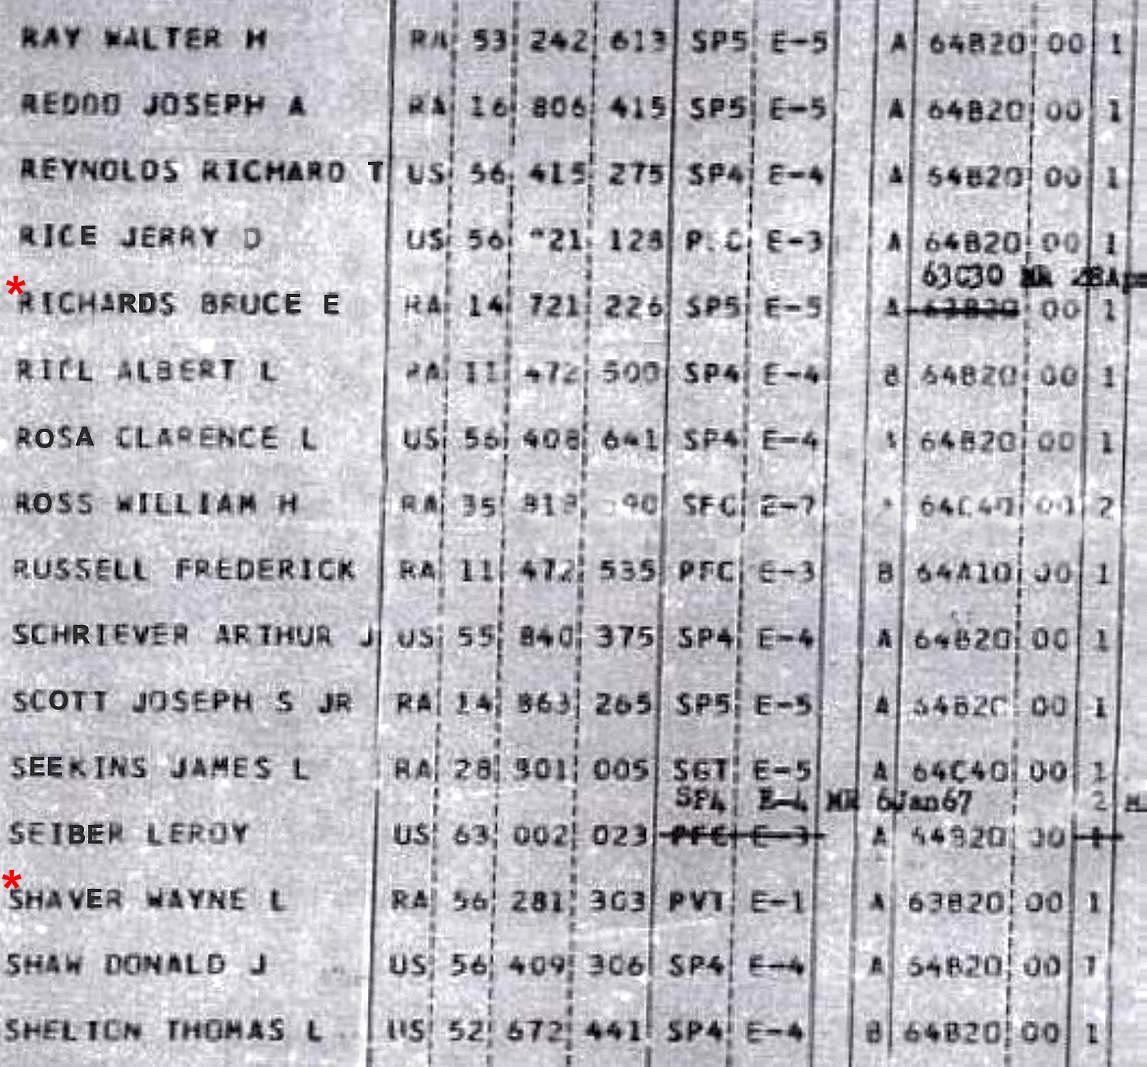 RAY WALTER H RA 53 242 613 SP5 E-5 A 64B20 00 1
REDDO JOSEPH A RA 16 806 415 SP5 E-5 A 64B20 00 1
REYNOLDS RICHARD T US 56 415 275 SP4 E-4 A 64B20 00 1
RICE JERRY D US 56 128 E-3 A 64B20 00 1
63C30
*RICHARDS BRUCE E RA 14 721 226 SP5 E-5 A 63B20 00 1
ALBERT L RA 11 472 500 SP4 E-4 B 64B20 00 1
ROSA CLARENCE L US 56 408 641 SP4 E-4 64B20 00 1
ROSS WILLIAM H RA 35 SFC E-7 64C40 00 2
RUSSELL FREDERICK RA 11 472 535 PFC E-3 B 64A10 00 1
SCHRIEVER ARTHUR J US 55 840 375 SP4 E-4 A 64B20 00 1
SCOTT JOSEPH S JR RA 14 863 265 SP5 E-5 A 64B20 00 1
SEEKINS JAMES L RA 28 901 005 SGT E-5 A 64C40 00 1
SP4 E-4 MR 6Jan67 2
SEIBER LEROY US 63 002 023 PFC E-3 A 64B20 00 1
*SHAVER WAYNE L RA 56 281 303 PVT E-1 A 63B20 00 1
SHAW DONALD J US 56 409 306 SP4 E-4 A 64B20 00 1
SHELTON THOMAS L US 52 672 441 SP4 E-4 B 64B20 00 1